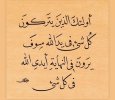 أولئك الذين يتركون
كل شيء في يد الله سوف
يرون في النهاية أيدي الله
في كل شيء